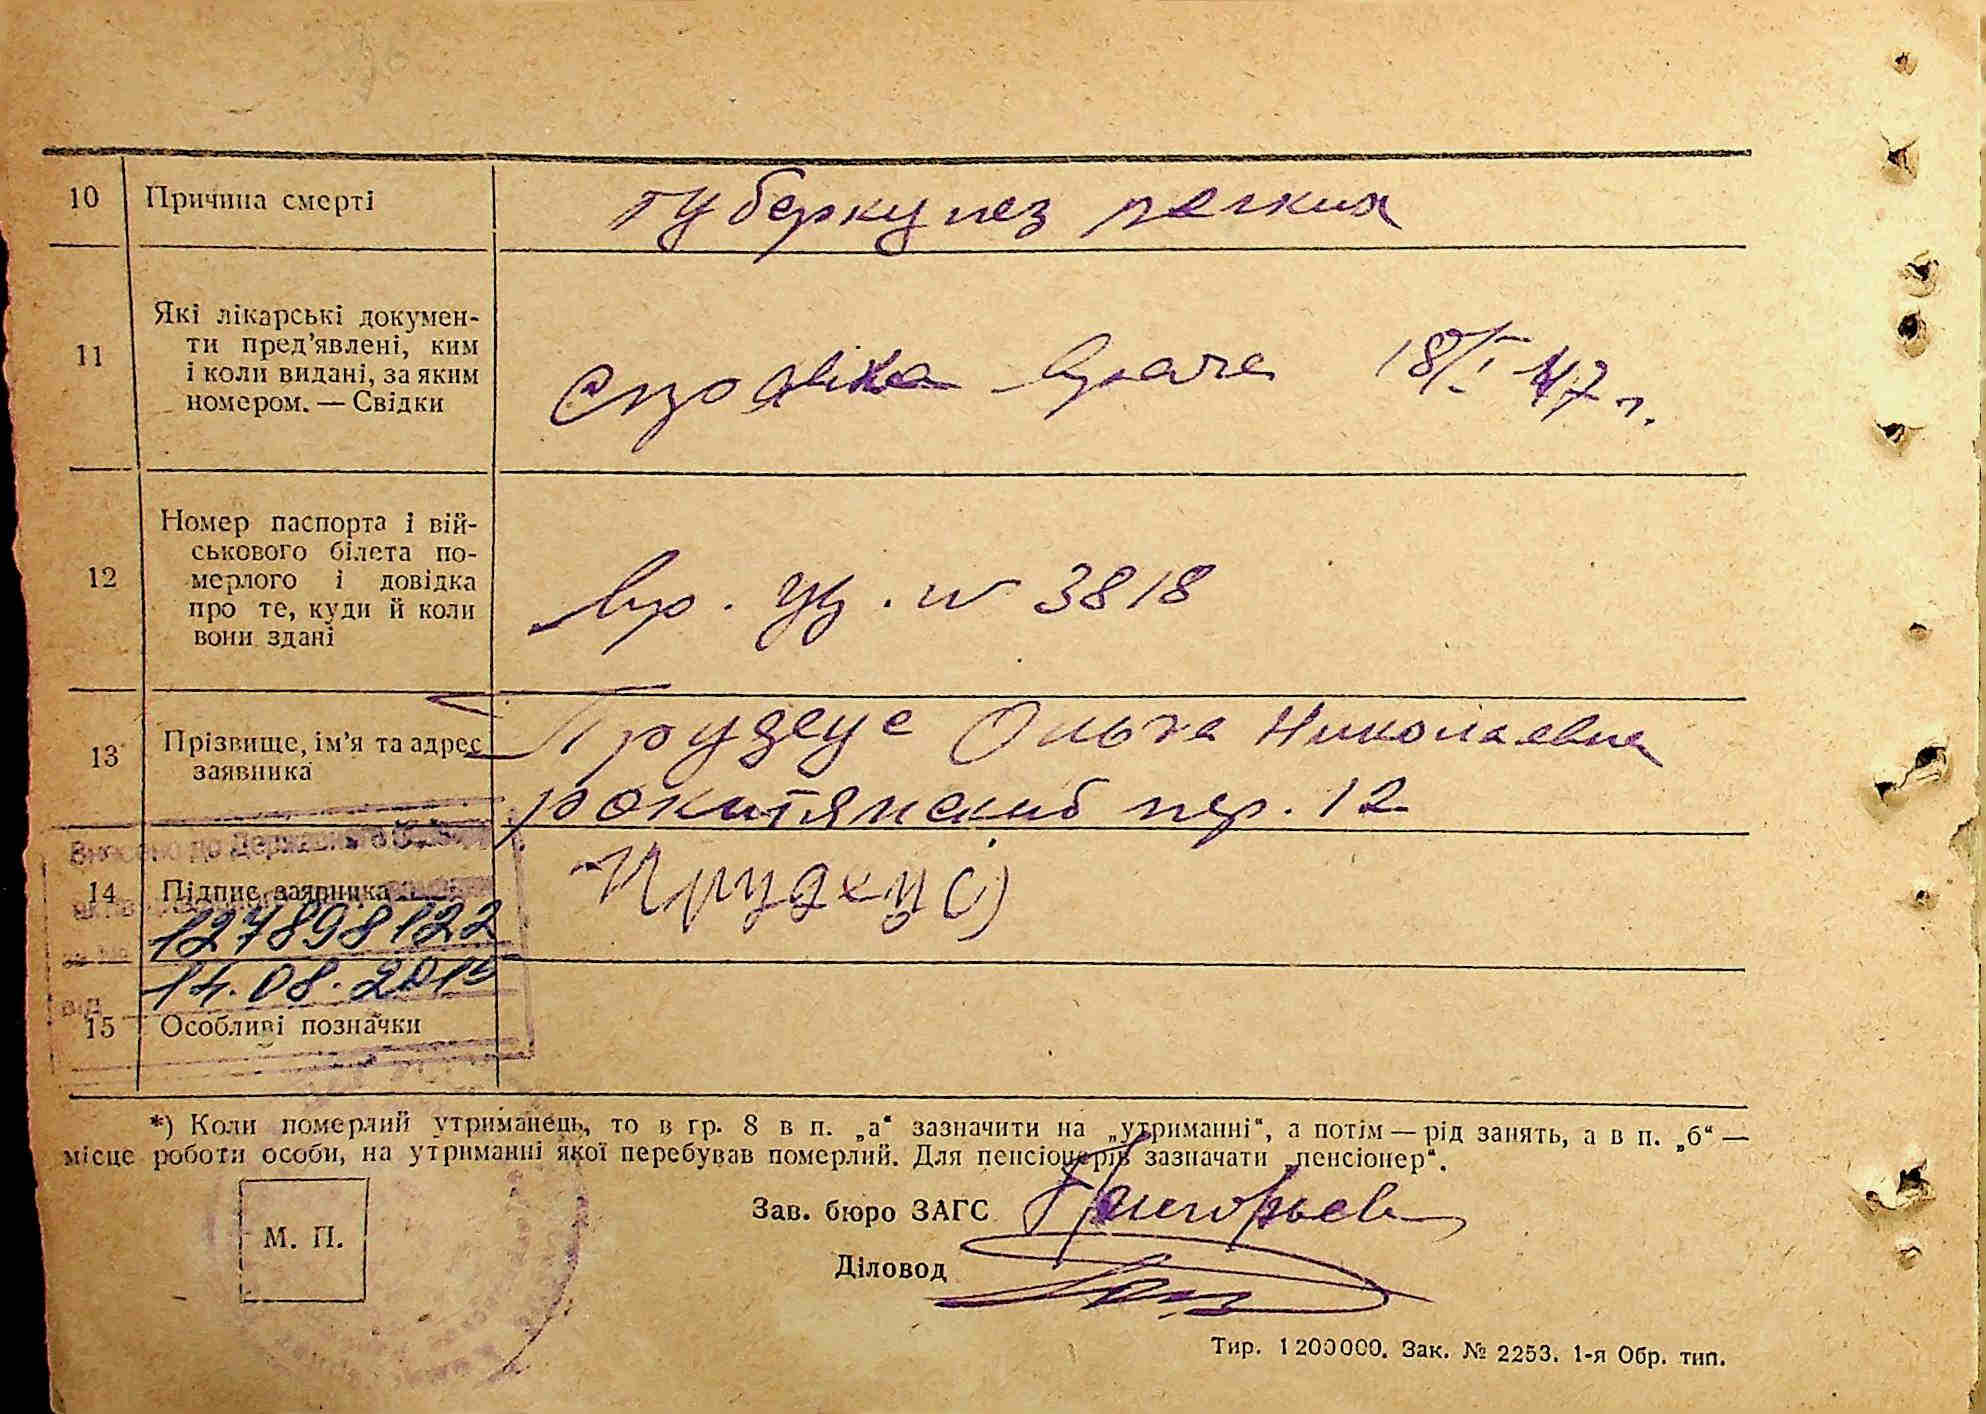 10 Причина смерті туберкулез легких
11 Які лікарські докумен-
ти пред'явлені, ким
і коли видані, за яким
номером. — Свідки
Справка врача 18/I 47 г.
12 Номер паспорта і вій-
ськового білета по-
мерлого і довідка
про те, куди й коли
вони здані
вр. уд. № 3818
13 Прізвище, ім'я та адрес
заявника
Прудеус Ольга Николаевна
рокитянский пер. 12
Внесено до Державного
14 Підпис заявника Прудеус
за №
127898122
14.08.2015
від
15 Особливі позначки
*) Коли померлий утриманець, то в гр. 8 в п. „а“ зазначити на „утриманні“, а потім — рід занять, а в п. „б“ —
місце роботи особи, на утриманні якої перебував померлий. Для пенсіонерів зазначати „пенсіонер“.
М. П.
Зав. бюро ЗАГС Григорьев
Діловод
Тир. 1200000. Зак. № 2253. 1-я Обр. тип.